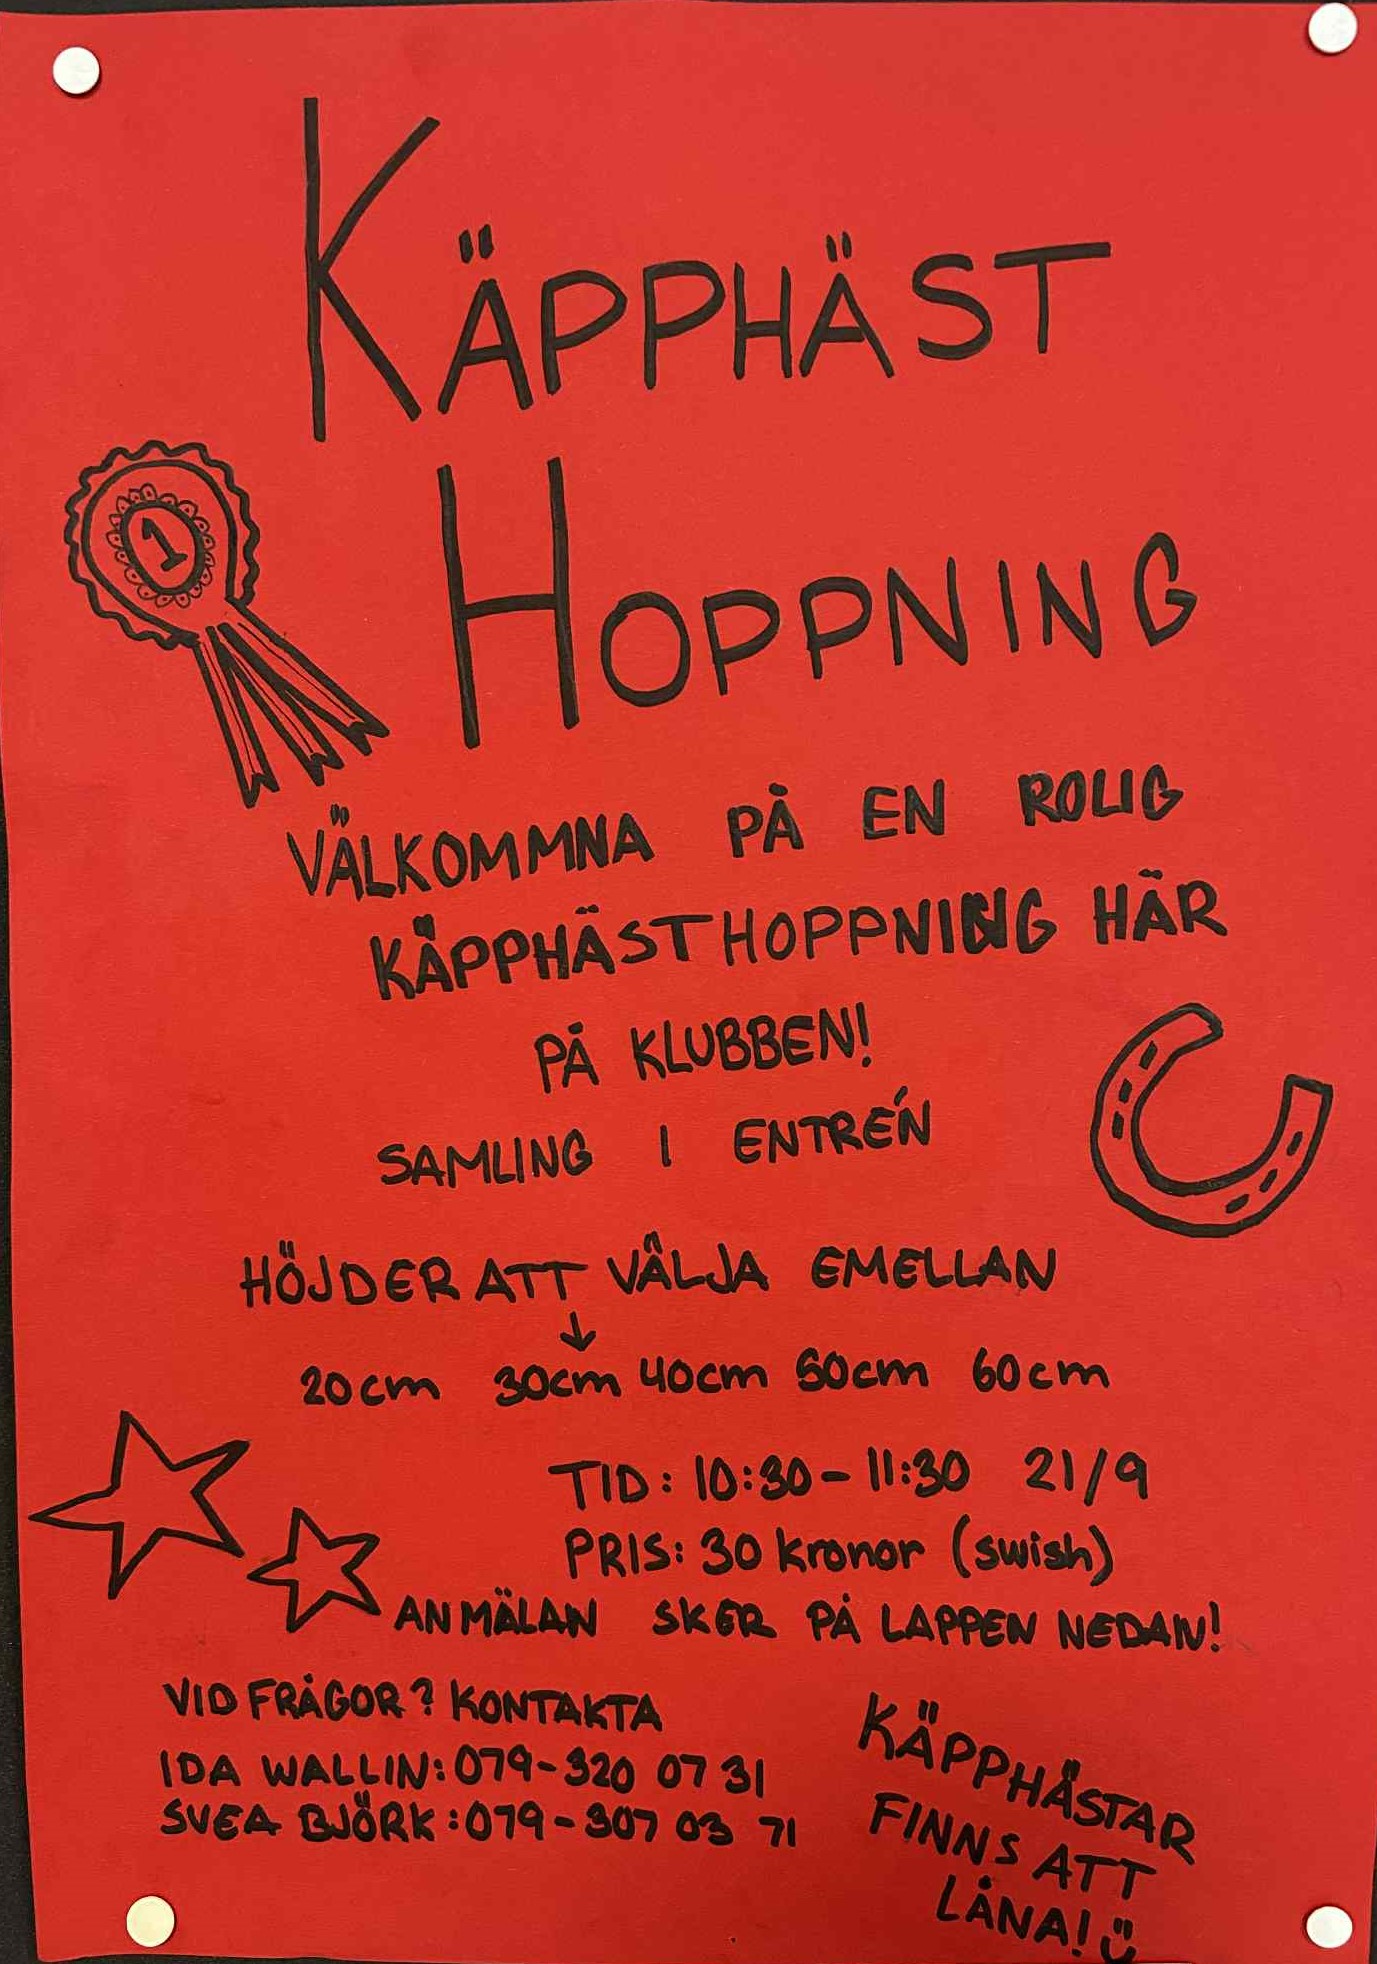 KÄPPHÄST
HOPPNING
1
VÄLKOMMNA PÅ EN ROLIG
KÄPPHÄSTHOPPNING HÄR
PÅ KLUBBEN!
SAMLING I ENTRÉN
HÖJDER ATT VÄLJA EMELLAN
↓
20cm 30cm 40cm 50cm 60cm
TID: 10:30-11:30 21/9
PRIS: 30 kronor (swish)
ANMÄLAN SKER PÅ LAPPEN NEDAN!
VID FRÅGOR? KONTAKTA
IDA WALLIN: 079-320 07 31
SVEA BJÖRK: 079-307 03 71
KÄPPHÄSTAR
FINNS ATT
LÅNA! Ü